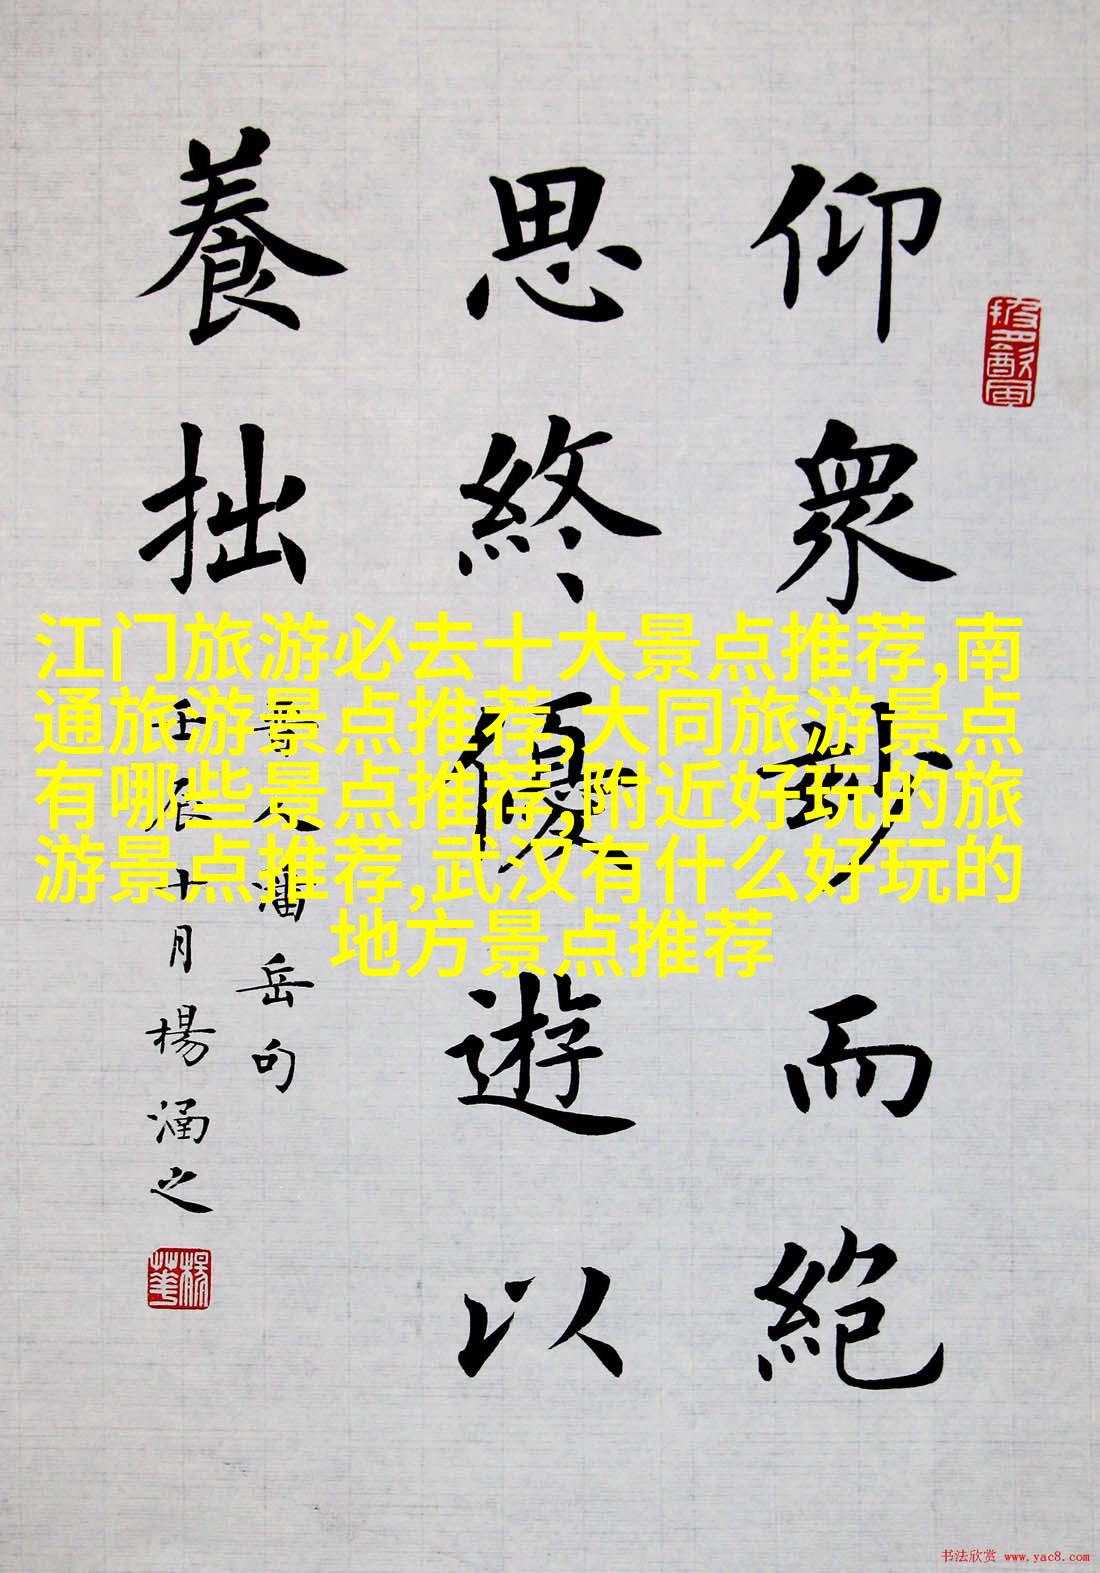 仰衆妙而絶
思終優遊以
養拙
晉人潘岳句
壬辰十月楊涵之
江门旅游必去十大景点推荐,南
通旅游景点推荐,大同旅游景点
有哪些景点推荐,附近好玩的旅
游景点推荐,武汉有什么好玩的
地方景点推荐
书法欣赏 www.yac8.com